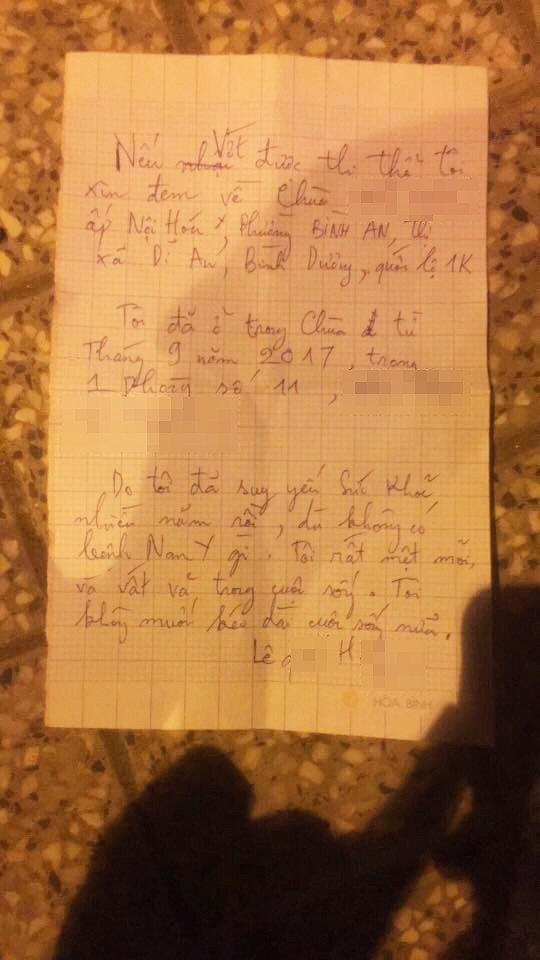 Nếu Vớt được thi thể tôi
xin đem về Chùa
ấp Nội Hóa 1, Phường BÌNH AN, Thị
xã Dĩ An, Bình Dương, quốc lộ 1K
Tôi đã ở trong Chùa từ
Tháng 9 năm 2017, trong
1 Phòng số 11,
Do tôi đã suy yếu Sức Khỏe
nhiều năm rồi, dù không có
bệnh Nan Y gì. Tôi rất mệt mỏi,
và vất vả trong cuộc sống. Tôi
không muốn kéo dài cuộc sống nữa.
Lê q H
HÒA BÌNH